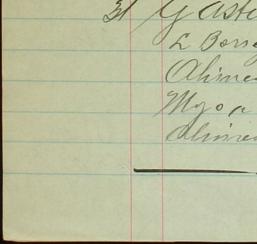 31 Gasto
L Bors
Alime
Mgo a
Alimen